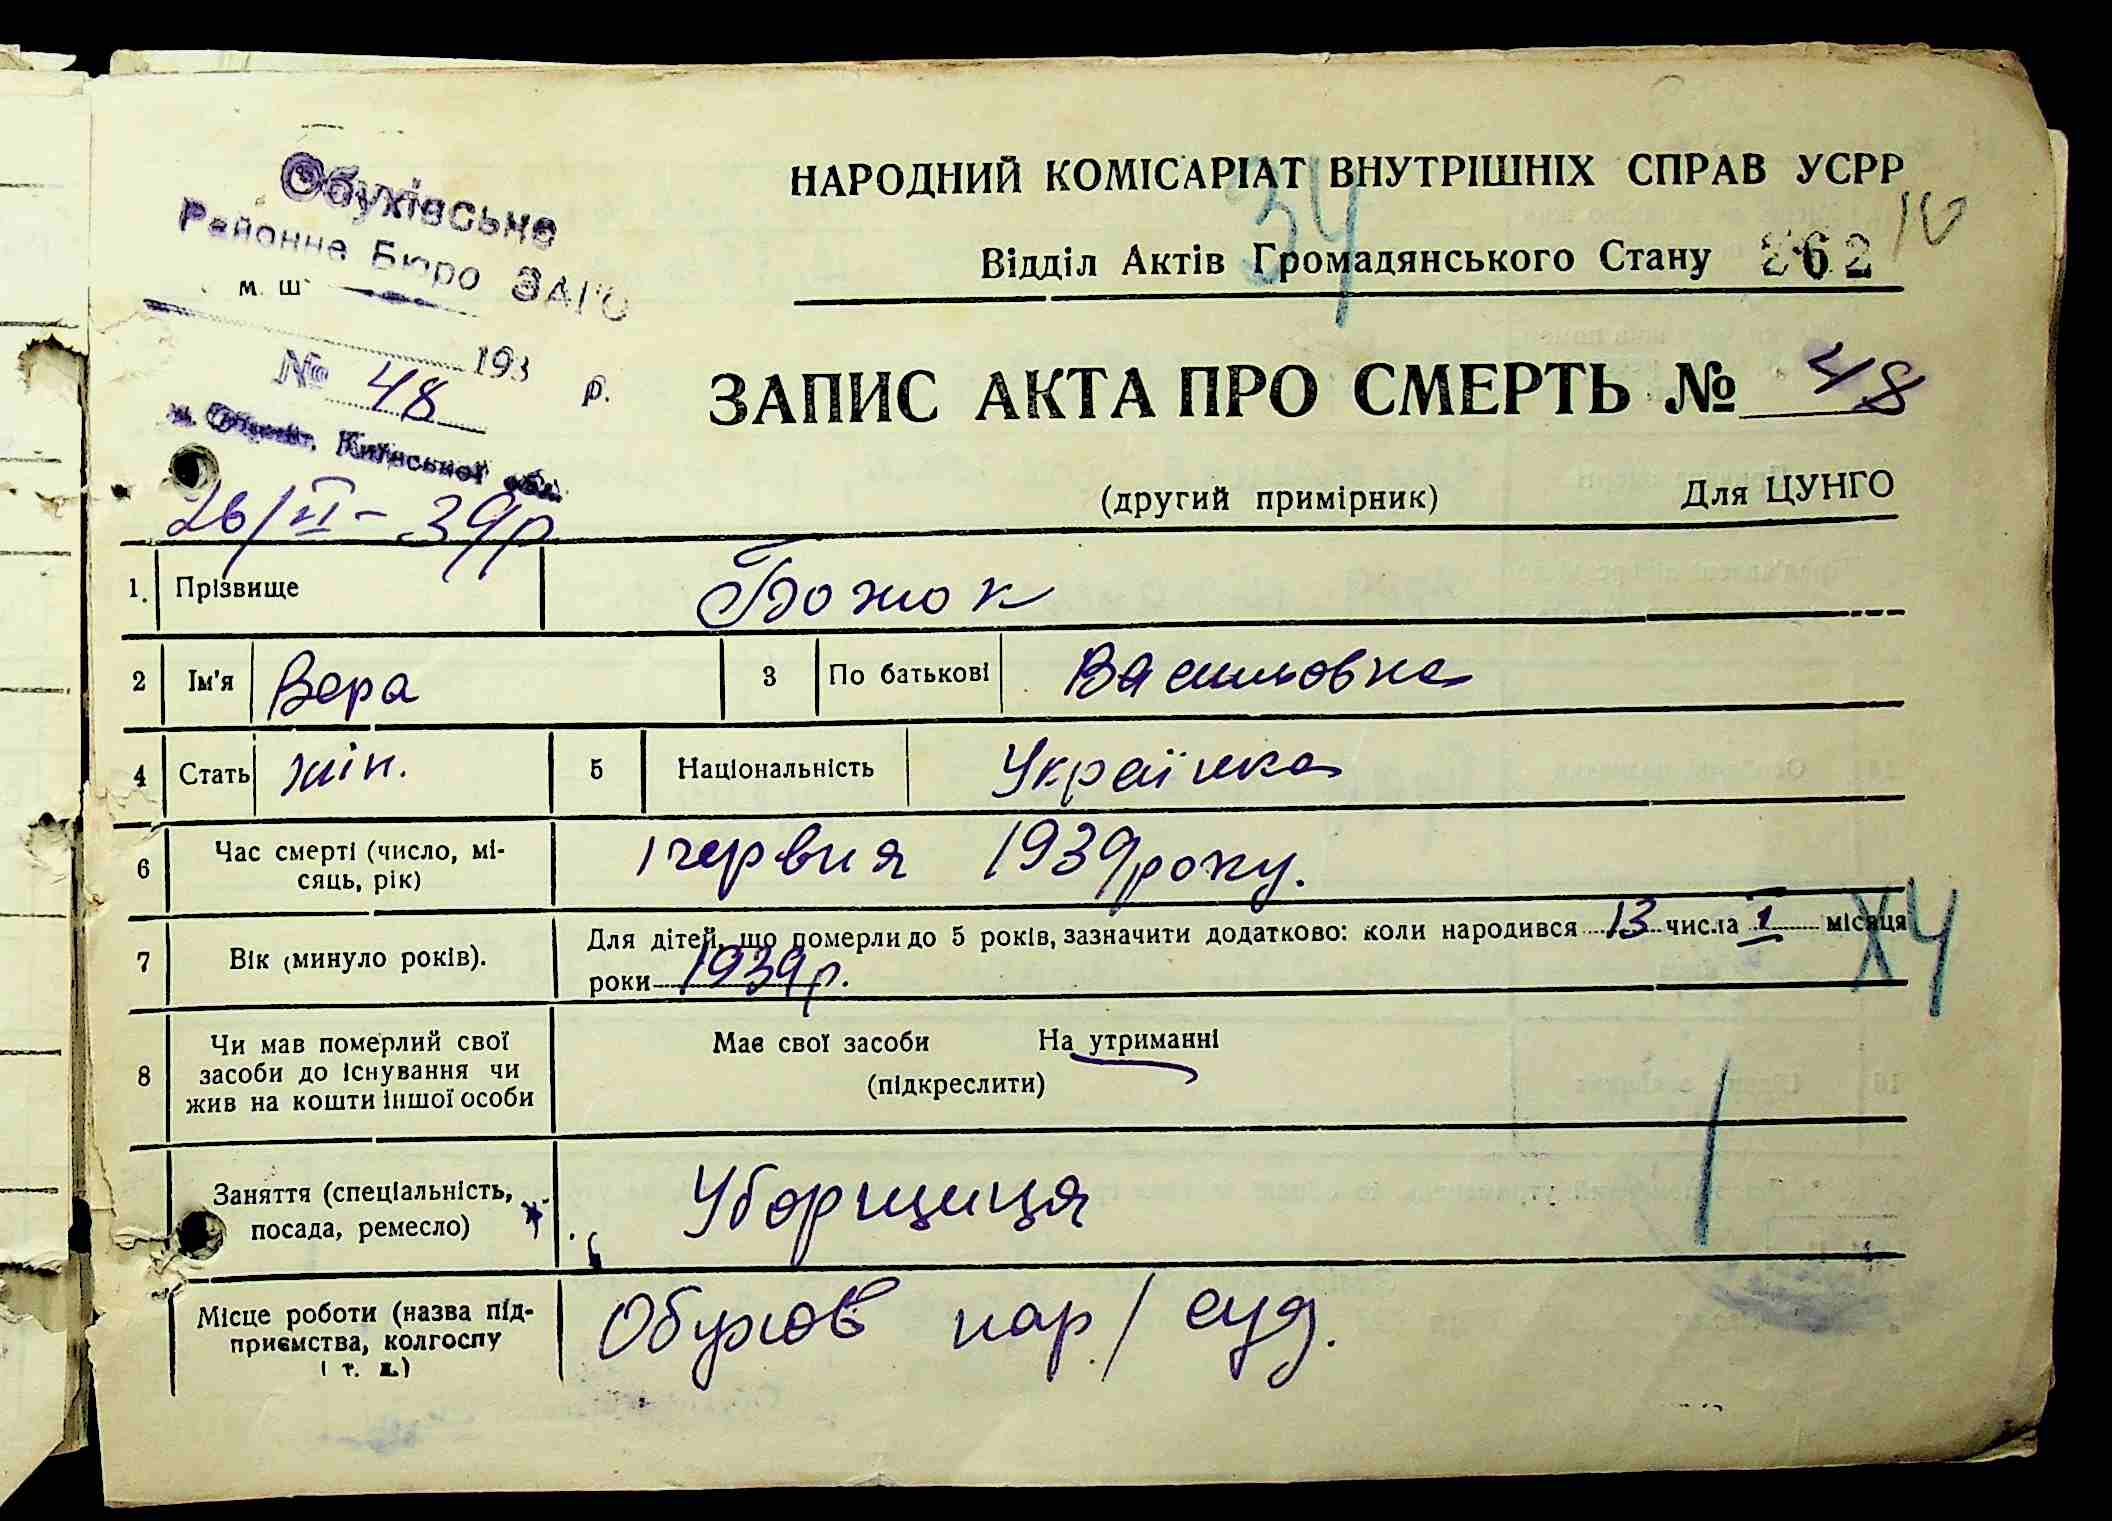 Обухівське
Районне Бюро ЗАГС
м. ш
193 р.
№ 48
м. Обухів, Київської обл.
26/VI - 39 р
НАРОДНИЙ КОМІСАРІАТ ВНУТРІШНІХ СПРАВ УСРР
34
10
Відділ Актів Громадянського Стану 262
ЗАПИС АКТА ПРО СМЕРТЬ № 48
(другий примірник) Для ЦУНГО
1. Прізвище Божок
2 Ім'я Вера 3 По батькові Васильовна
4 Стать жін. 5 Національність Українка
6 Час смерті (число, мі-
сяць, рік) 1 червня 1939 року.
7 Вік (минуло років). Для дітей, що померли до 5 років, зазначити додатково: коли народився 13 числа 1 місяця
роки 1939 р.
Х4
8 Чи мав померлий свої
засоби до існування чи
жив на кошти іншої особи
Має свої засоби На утриманні
(підкреслити)
1
Заняття (спеціальність,
посада, ремесло) Уборщиця
Місце роботи (назва під-
приємства, колгоспу
і т. д.) Обухов нар/суд.